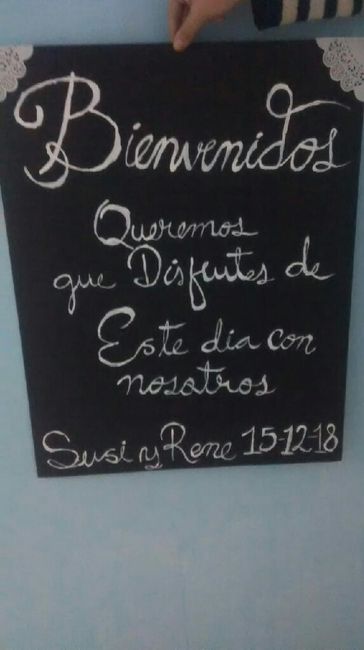 Bienvenidos
Queremos
que Disfrutes de
Este dia con
nosotros
Susi y Rene 15-12-18